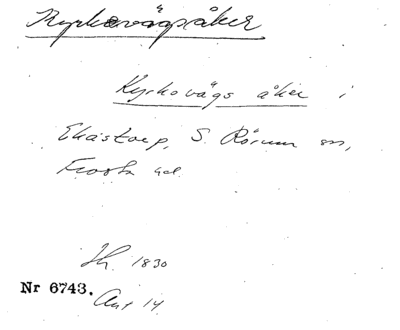 Kyrkovägsåker
Kyrkovägs åker i
Ekastorp, S. Rörum sn,
Frosta hd.
1830
Nr 6743.
Akt 14